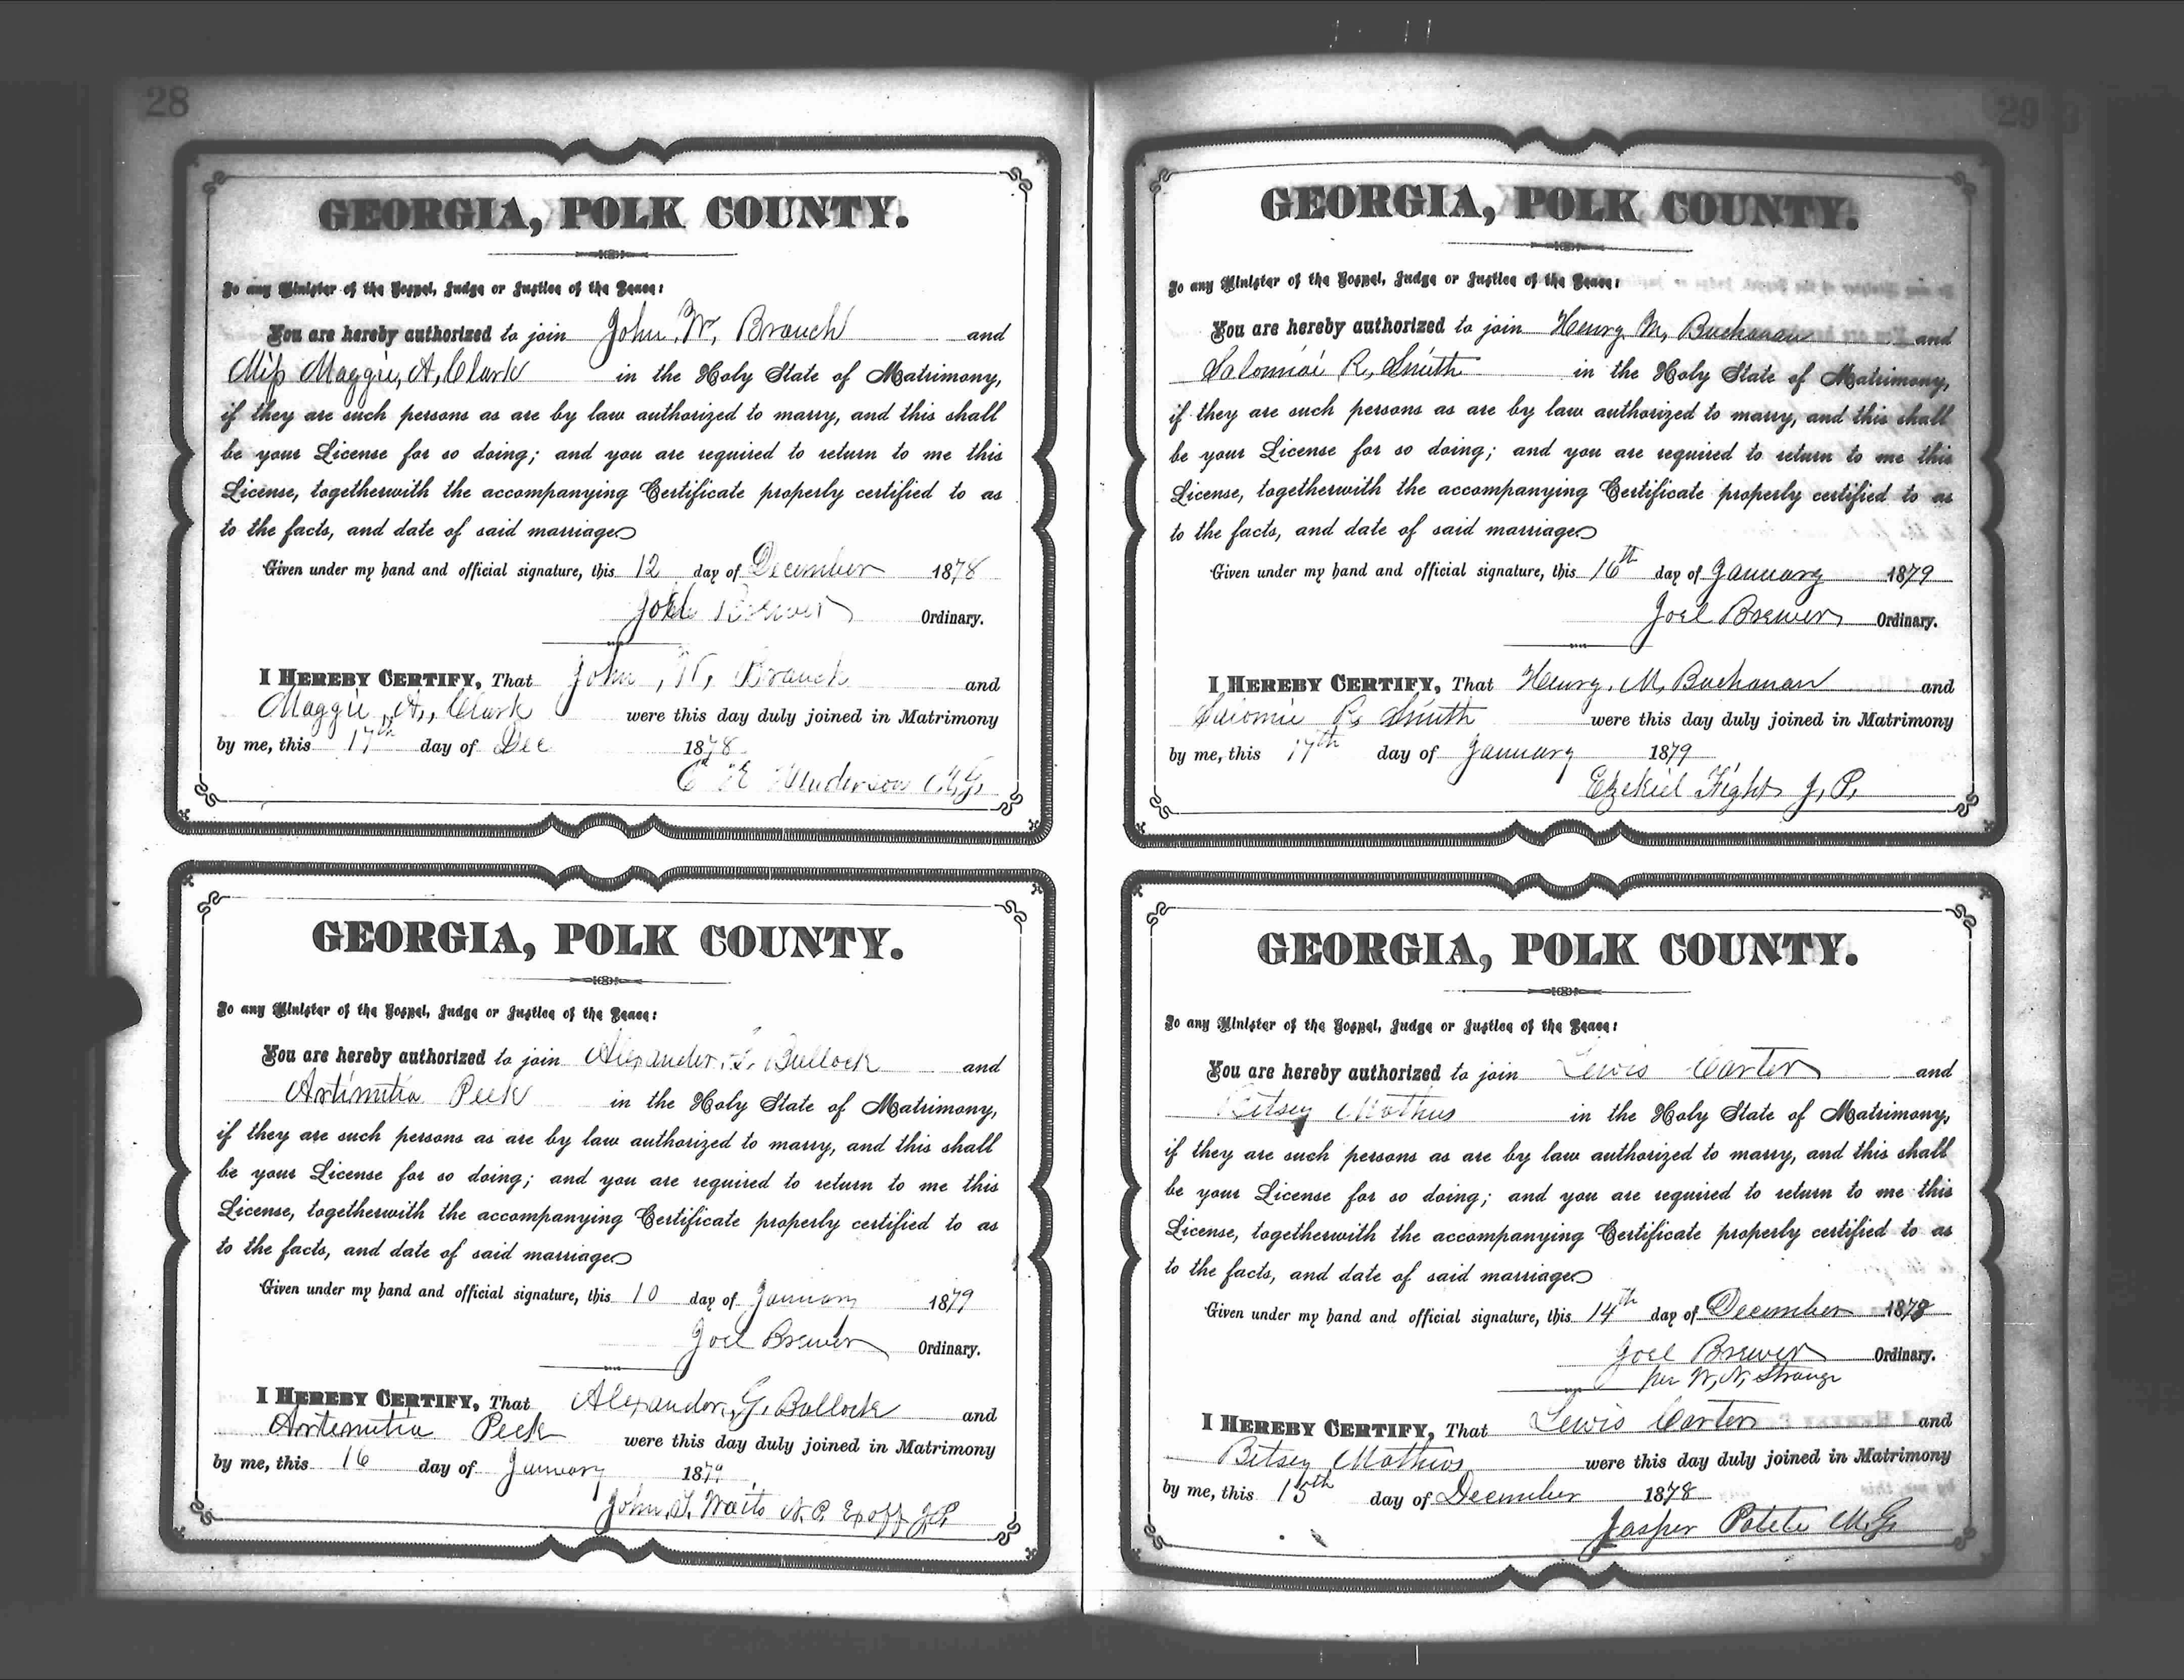 28
GEORGIA, POLK COUNTY.
To any Minister of the Gospel, Judge or Justice of the Peace:
You are hereby authorized to join John W. Branch and
Miss Maggie, A, Clark in the Holy State of Matrimony,
if they are such persons as are by law authorized to marry, and this shall
be your License for so doing; and you are required to return to me this
License, togetherwith the accompanying Certificate properly certified to as
to the facts, and date of said marriage
Given under my hand and official signature, this 12 day of December 1878
Joel Brewer Ordinary.
I HEREBY CERTIFY, That John, W, Branch and
Maggie, A., Clark were this day duly joined in Matrimony
by me, this 17th day of Dec 1878
C E Henderson M.G.
GEORGIA, POLK COUNTY.
To any Minister of the Gospel, Judge or Justice of the Peace:
You are hereby authorized to join Alexander. G. Bullock and
Artimitia Peek in the Holy State of Matrimony,
if they are such persons as are by law authorized to marry, and this shall
be your License for so doing; and you are required to return to me this
License, togetherwith the accompanying Certificate properly certified to as
to the facts, and date of said marriage
Given under my hand and official signature, this 10 day of January 1879
Joel Brewer Ordinary.
I HEREBY CERTIFY, That Alexander, G. Bullock and
Artemitia Peek were this day duly joined in Matrimony
by me, this 16 day of January 1879
John, S. Waits N. P. Exoff J.P
29
GEORGIA, POLK COUNTY.
To any Minister of the Gospel, Judge or Justice of the Peace:
You are hereby authorized to join Henry M, Buchanan and
Salomiai R, Smith in the Holy State of Matrimony,
if they are such persons as are by law authorized to marry, and this shall
be your License for so doing; and you are required to return to me this
License, togetherwith the accompanying Certificate properly certified to as
to the facts, and date of said marriage
Given under my hand and official signature, this 16th day of January 1879
Joel Brewer Ordinary.
I HEREBY CERTIFY, That Henry, M, Buchanan and
Salomie R, Smith were this day duly joined in Matrimony
by me, this 17th day of January 1879
Ezekiel Fight J, P,
GEORGIA, POLK COUNTY.
To any Minister of the Gospel, Judge or Justice of the Peace:
You are hereby authorized to join Lewis Carter and
Bitsey Mathis in the Holy State of Matrimony,
if they are such persons as are by law authorized to marry, and this shall
be your License for so doing; and you are required to return to me this
License, togetherwith the accompanying Certificate properly certified to as
to the facts, and date of said marriage
Given under my hand and official signature, this 14th day of December 1878
Joel Brewer Ordinary.
per W, N, Strange
I HEREBY CERTIFY, That Lewis Carter and
Bitsey Mathis were this day duly joined in Matrimony
by me, this 15th day of December 1878
Jasper Potete M.G.